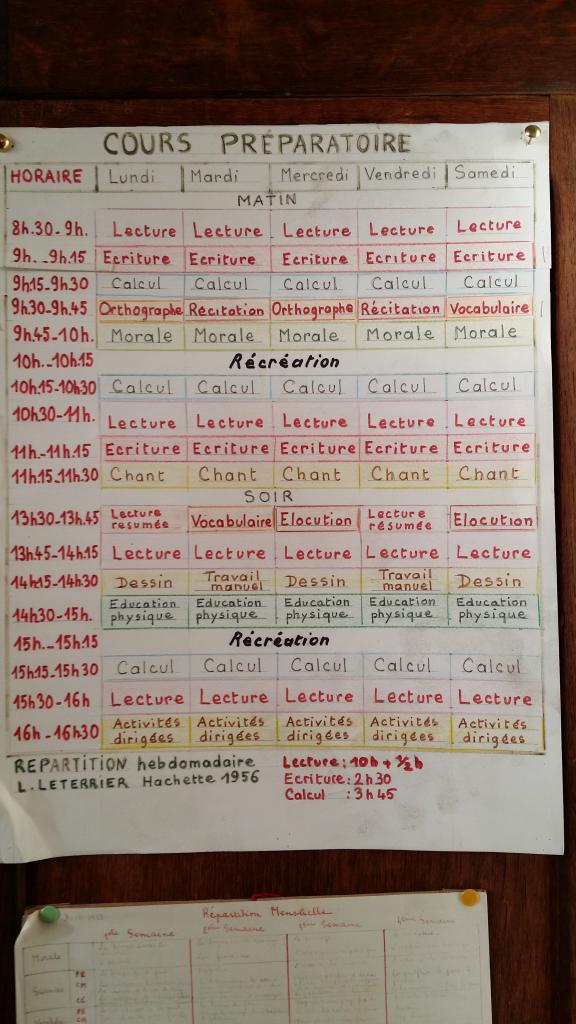 COURS PRÉPARATOIRE
HORAIRE Lundi Mardi Mercredi Vendredi Samedi
MATIN
8h.30-9h. Lecture Lecture Lecture Lecture Lecture
9h.-9h.15 Ecriture Ecriture Ecriture Ecriture Ecriture
9h15-9h30 Calcul Calcul Calcul Calcul Calcul
9h30-9h.45 Orthographe Récitation Orthographe Récitation Vocabulaire
9h.45-10h. Morale Morale Morale Morale Morale
10h.-10h.15 Récréation
10h.15-10h30 Calcul Calcul Calcul Calcul Calcul
10h30-11h. Lecture Lecture Lecture Lecture Lecture
11h.-11h.15 Ecriture Ecriture Ecriture Ecriture Ecriture
11h.15-11h30 Chant Chant Chant Chant Chant
SOIR
13h30-13h.45 Lecture résumée Vocabulaire Elocution Lecture résumée Elocution
13h.45-14h.15 Lecture Lecture Lecture Lecture Lecture
14h15-14h30 Dessin Travail manuel Dessin Travail manuel Dessin
14h30-15h. Education physique Education physique Education physique Education physique Education physique
15h.-15h.15 Récréation
15h15-15h30 Calcul Calcul Calcul Calcul Calcul
15h30-16h Lecture Lecture Lecture Lecture Lecture
16h-16h30 Activités dirigées Activités dirigées Activités dirigées Activités dirigées Activités dirigées
REPARTITION hebdomadaire
L. LETERRIER Hachette 1956
Lecture: 10h + 1/2h
Ecriture: 2h30
Calcul : 3h45
Répartition Mensuelle
Semaine Semaine Semaine Semaine
Morale